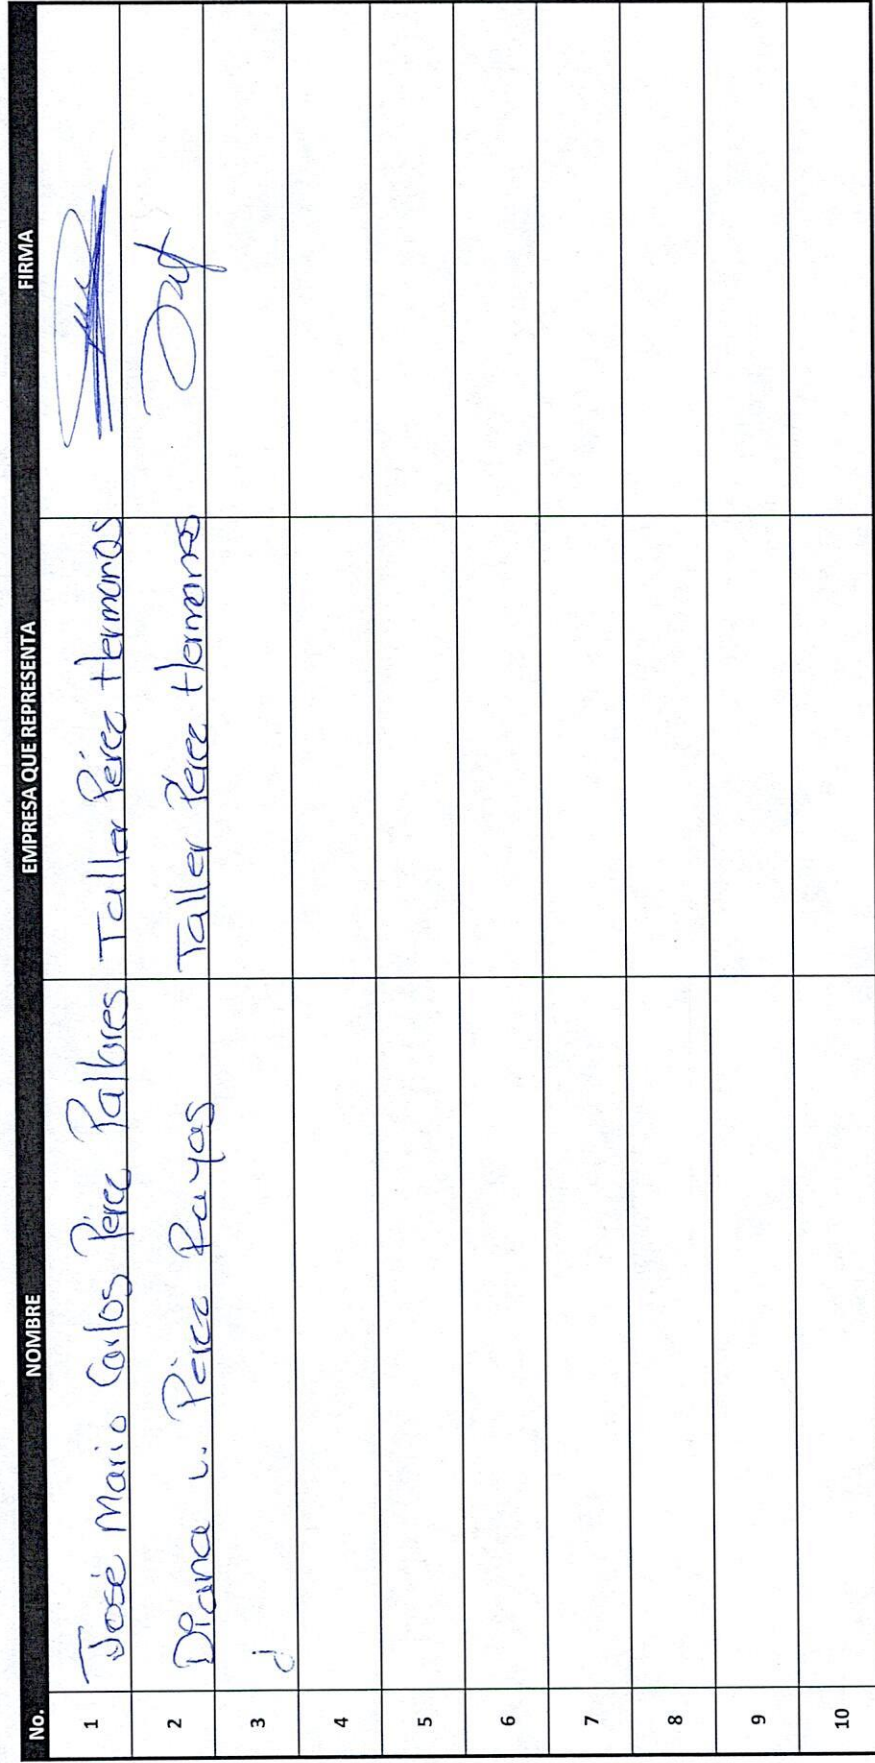 No. NOMBRE EMPRESA QUE REPRESENTA FIRMA
1 José Mario Carlos Pérez Pallares Taller Pérez Hermanos
2 Diana L. Pérez Rayas Taller Pérez Hermanos
3 d
4
5
6
7
8
9
10